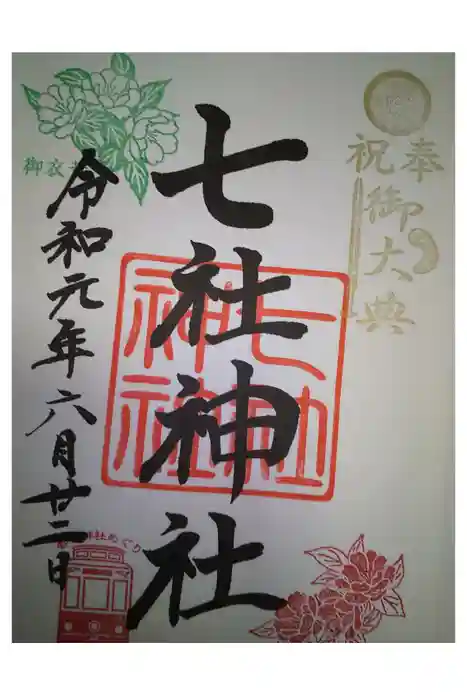 奉祝
御大典
七社神社
七社神社
令和元年六月廿二日
御衣
社めぐり